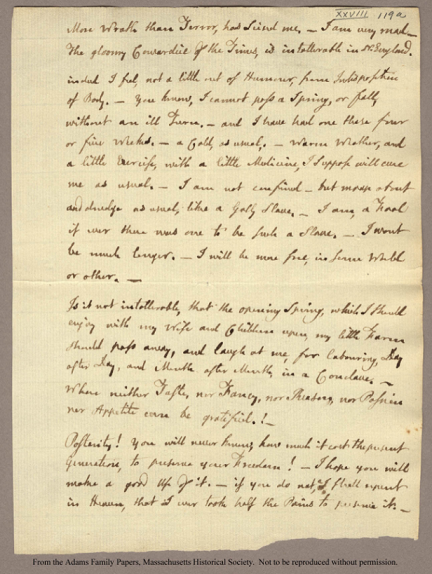 XXVIII 119a
More Wrath than Terror, has seized me. — I am very mad —
The gloomy Cowardice of the Times, is intollerable in N. England.
indeed I feel, not a little out of Humour, from Indisposition
of Body. — You know, I cannot pass a Spring, or fall,
without an ill Turn. — and I have had one these four
or five Weeks. — a Cold, as usual. — Warm Weather, and
a little Exercise, with a little Medicine, I suppose will cure
me as usual. — I am not confined — but mope about
and drudge as usual, like a Gally Slave. — I am a Fool
if ever there was one to be such a Slave. — I wont
be much longer. — I will be more free, in some World
or other. —
Is it not intollerable, that the opening Spring, which I should
enjoy with my Wife and Children upon my little Farm
should pass away, and laugh at me, for labouring, Day
after Day, and Month after Month, in a Conclave, —
Where neither Taste, nor Fancy, nor Reason, nor Passion
nor Appetite can be gratified.! —
Posterity! You will never know, how much it cost the present
Generation, to preserve your Freedom! — I hope you will
make a good Use of it. — if you do not, I shall repent
in Heaven, that I ever took half the Pains to preserve it. —
From the Adams Family Papers, Massachusetts Historical Society. Not to be reproduced without permission.